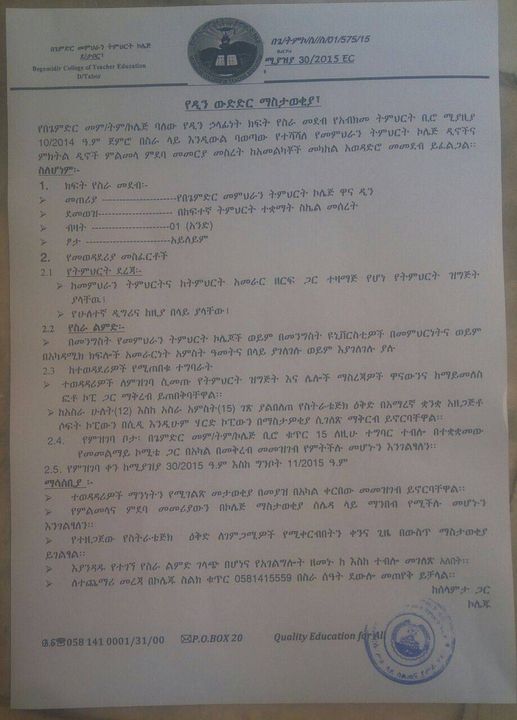 በጌምድር መምህራን ትምህርት ኮሌጅ
ደ/ታቦር፣
Begemidir College of Teacher Education
D/Tabor
በጌ/ት/ምኮ/ስ/ስ/01/575/15
ሚያዝያ 30/2015 EC
የዲን ውድድር ማስታወቂያ፣
የበጌምድር መም/ት/ም/ኮሌጅ ባለው የዲን ኃላፊነት ክፍት የስራ መደብ የአብክመ ትምህርት ቢሮ ሚያዚያ
10/2014 ዓ.ም ጀምሮ በስራ ላይ እንዲውል ባወጣው የተሻሻለ የመምህራን ትምህርት ኮሌጅ ዲኖችና
ምክትል ዲኖች ምልመላ ምደባ መመርያ መሰረት ከአመልካቾች መካከል አወዳድሮ መመደብ ይፈልጋል፡፡
ስለሆነም፡-
1. ክፍት የስራ መደብ፡-
➢ መጠሪያ --------------------የበጌምድር መምህራን ትምህርት ኮሌጅ ዋና ዲን
➢ ደመወዝ-------------------- በከፍተኛ ትምህርት ተቋማት ስኬል መሰረት
➢ ብዛት ---------------------01 (አንድ)
➢ ፆታ ----------------------አይለይም
2. የመወዳደሪያ መስፈርቶች
2.1 የትምህርት ደረጃ፡-
➢ ከመምህራን ትምህርትና ከትምህርት አመራር ዘርፍ ጋር ተዛማጅ የሆነ የትምህርት ዝግጅት
ያላቸዉ፤
➢ የሁለተኛ ዲግሪና ከዚያ በላይ ያላቸው፤
2.2 የስራ ልምድ፡-
➢ በመንግስት የመምህራን ትምህርት ኮሌጆች ወይም በመንግስት ዩኒቨርስቲዎች በመምህርነትና ወይም
በአካዳሚክ ክፍሎች አመራርነት አምስት ዓመትና በላይ ያገለገሉ ወይም እያገለገሉ ያሉ
2.3 ከተወዳደሪዎች የሚጠበቁ ተግባራት
➢ ተወዳዳሪዎች ለምዝገባ ሲመጡ የትምህርት ዝግጅት እና ሌሎች ማስረጃዎች ዋናውንና ከማይመለስ
ፎቶ ኮፒ ጋር ማቅረብ ይጠበቅባቸዋል፡፡
➢ ከአስራ ሁለት(12) እስከ አስራ አምስት(15) ገጽ ያልበለጠ የስትራቴጅክ ዕቅድ በአማረኛ ቋንቋ አዘጋጅቶ
ሶፍት ኮፒውን በሲዲ እንዲሁም ሃርድ ኮፒውን በማስታዎቂያ ሲገለጽ ማቅረብ ይኖርባቸዋል፡፡
2.4. የምዝገባ ቦታ፡ በጌምድር መም/ትም/ኮሌጅ ቢሮ ቁጥር 15 ለዚሁ ተግባር ተብሎ በተቋቋመው
የመመልማይ ኮሚቴ ጋር በአካል በመቅረብ መመዝገብ የምትችሉ መሆኑን እንገልፃለን፡፡
2.5. የምዝገባ ቀን ከሚያዝያ 30/2015 ዓ.ም እስከ ግንቦት 11/2015 ዓ.ም
ማሳሰቢያ ፡-
➢ ተወዳዳሪዎች ማንነትን የሚገልጽ መታወቂያ በመያዝ በአካል ቀርበው መመዝገብ ይኖርባቸዋል፡፡
➢ የምልመላና ምደባ መመሪያውን በኮሌጅ ማስታወቂያ ሰሌዳ ላይ ማንበብ የሚችሉ መሆኑን
እንገልፃለን፡፡
➢ የተዘጋጀው የስትራቴጅክ ዕቅድ ለገምጋሚዎች የሚቀርብበትን ቀንና ጊዜ በውስጥ ማስታወቂያ
ይገልፃል፡፡
➢ እያንዳንዱ የተገኘ የስራ ልምድ ገላጭ በሆነና የአገልግሎት ዘመኑ ከ እስከ ተብሎ መገለጽ አለበት፡፡
➢ ለተጨማሪ መረጃ በኮሌጁ ስልክ ቁጥር 0581415559 በስራ ሰዓት ደውሎ መጠየቅ ይቻላል፡፡
ከሰላምታ ጋር
ኮሌጁ
☎058 141 0001/31/00 ✉P.O.BOX 20 Quality Education for All